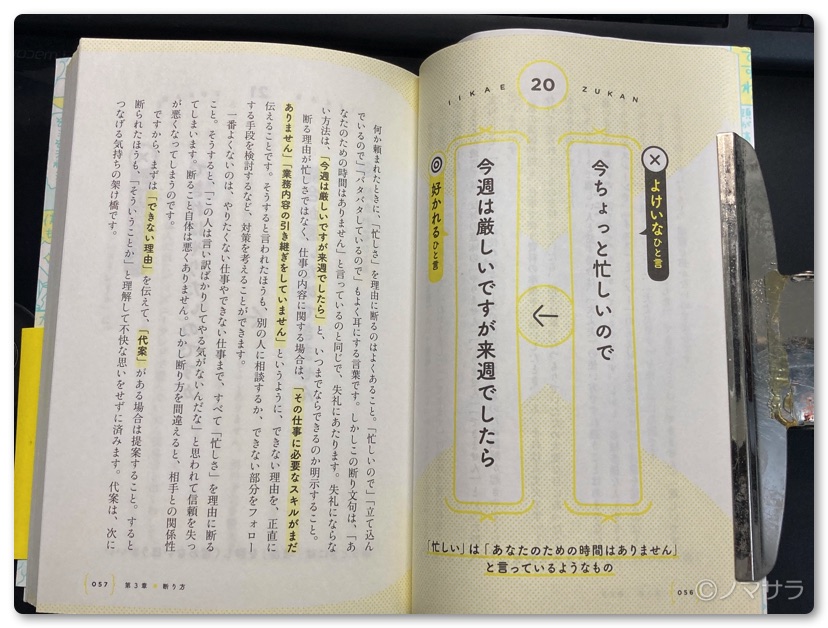 IIKAE
20
ZUKAN
よけいなひと言
今ちょっと忙しいので
←
好かれるひと言
今週は厳しいですが来週でしたら
「忙しい」は「あなたのための時間はありません」
と言っているようなもの
056
何か頼まれたときに、「忙しさ」を理由に断るのはよくあること。「忙しいので」「立て込ん
でいるので」「バタバタしているので」もよく耳にする言葉です。しかしこの断り文句は、「あ
なたのための時間はありません」と言っているのと同じで、失礼にあたります。失礼にならな
い方法は、「今週は厳しいですが来週でしたら」と、いつまでならできるのか明示すること。
断る理由が忙しさではなく、仕事の内容に関する場合は、「その仕事に必要なスキルがまだ
ありません」「業務内容の引き継ぎをしていません」というように、できない理由を、正直に
伝えることです。そうすると言われたほうも、別の人に相談するか、できない部分をフォロー
する手段を検討するなど、対策を考えることができます。
一番よくないのは、やりたくない仕事やできない仕事まで、すべて「忙しさ」を理由に断る
こと。そうすると、「この人は言い訳ばかりしてやる気がないんだな」と思われて信頼を失っ
てしまいます。断ること自体は悪くありません。しかし断り方を間違えると、相手との関係性
が悪くなってしまうのです。
ですから、まずは「できない理由」を伝えて、「代案」がある場合は提案すること。すると
断られたほうも、「そういうことか」と理解して不快な思いをせずに済みます。代案は、次に
つなげる気持ちの架け橋です。
057
第3章 断り方
©ノマサラ